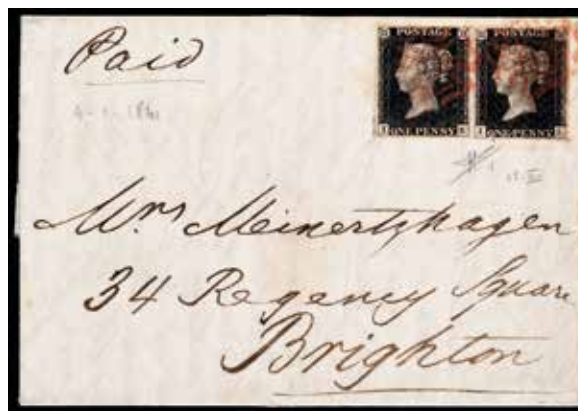 Paid
POSTAGE POSTAGE
ONE PENNY ONE PENNY
Mrs Meinertzhagen
34 Regency Square
Brighton